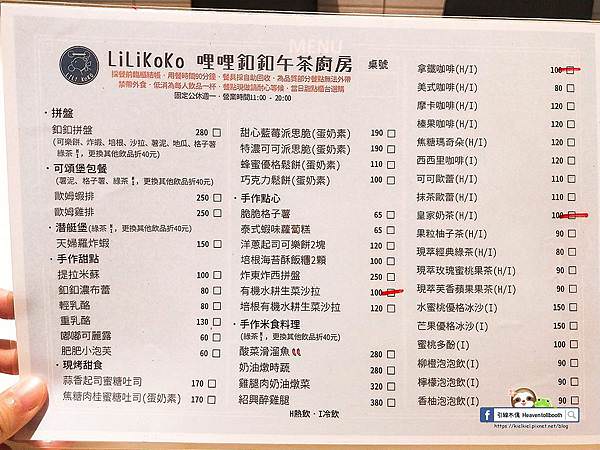 LiLiKoKo 哩哩釦釦午茶廚房
MENU
LILI KOKO
採餐前臨櫃結帳，用餐時間90分鐘，餐具採自助回收，為品質部分餐點無法外帶
禁帶外食，低消為每人飲品一杯，餐點現做請耐心等候，當日甜點櫃台選購
固定公休週一，營業時間11:00 - 20:00
桌號
·拼盤
釦釦拼盤 280
(可樂餅、炸蝦、培根、沙拉、薯泥、地瓜、格子薯
綠茶，更換其他飲品折40元)
·可頌堡包餐
(薯泥、格子薯、綠茶，更換其他飲品折40元)
歐姆蝦排 250
歐姆雞排 250
·潛艇堡(綠茶，更換其他飲品折40元)
天婦羅炸蝦 150
·手作甜點
提拉米蘇 100
釦釦濃布蕾 80
輕乳酪 80
重乳酪 130
嘟嘟可麗露 60
肥肥小泡芙 60
·現烤甜食
蒜香起司蜜糖吐司 170
焦糖肉桂蜜糖吐司(蛋奶素) 170
甜心藍莓派思脆(蛋奶素) 190
特濃可可派思脆(蛋奶素) 190
蜂蜜優格鬆餅(蛋奶素) 110
巧克力鬆餅(蛋奶素) 100
·手作點心
脆脆格子薯 65
泰式蝦味蘿蔔糕 65
洋蔥起司可樂餅2塊 120
培根海苔酥飯糰2顆 100
炸東炸西拼盤 250
有機水耕生菜沙拉 100
培根有機水耕生菜沙拉 120
·手作米食料理
(綠茶，更換其他飲品折40元)
酸菜滑溜魚 280
奶油燉時蔬 280
雞腿肉奶油燉菜 320
紹興醉雞腿 380
H熱飲，I冷飲
拿鐵咖啡(H/I) 100
美式咖啡(H/I) 80
摩卡咖啡(H/I) 120
榛果咖啡(H/I) 120
焦糖瑪奇朵(H/I) 120
西西里咖啡(I) 120
可可歐蕾(H/I) 110
抹茶歐蕾(H/I) 110
皇家奶茶(H/I) 100
果粒柚子茶(H/I) 90
現萃經典綠茶(H/I) 80
現萃玫瑰蜜桃果茶(H/I) 90
現萃芙香蘋果果茶(H/I) 90
水蜜桃優格冰沙(I) 150
芒果優格冰沙(I) 150
蜜桃多酚(I) 100
柳橙泡泡飲(I) 90
檸檬泡泡飲(I) 90
香柚泡泡飲(I) 90
引線不慎 Heaventollbooth
https://kielkiel.pixnet.net/blog